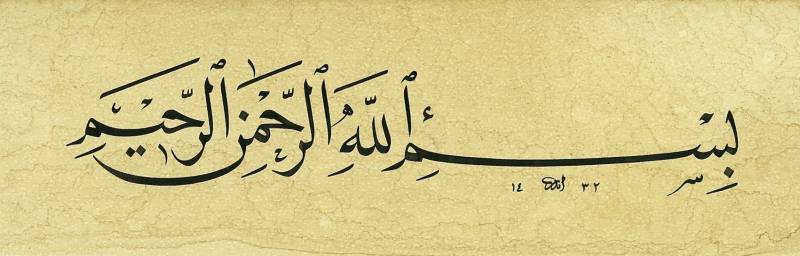 بِسْمِ ٱللَّهِ ٱلرَّحْمَٰنِ ٱلرَّحِيمِ
١٤ ٣٢